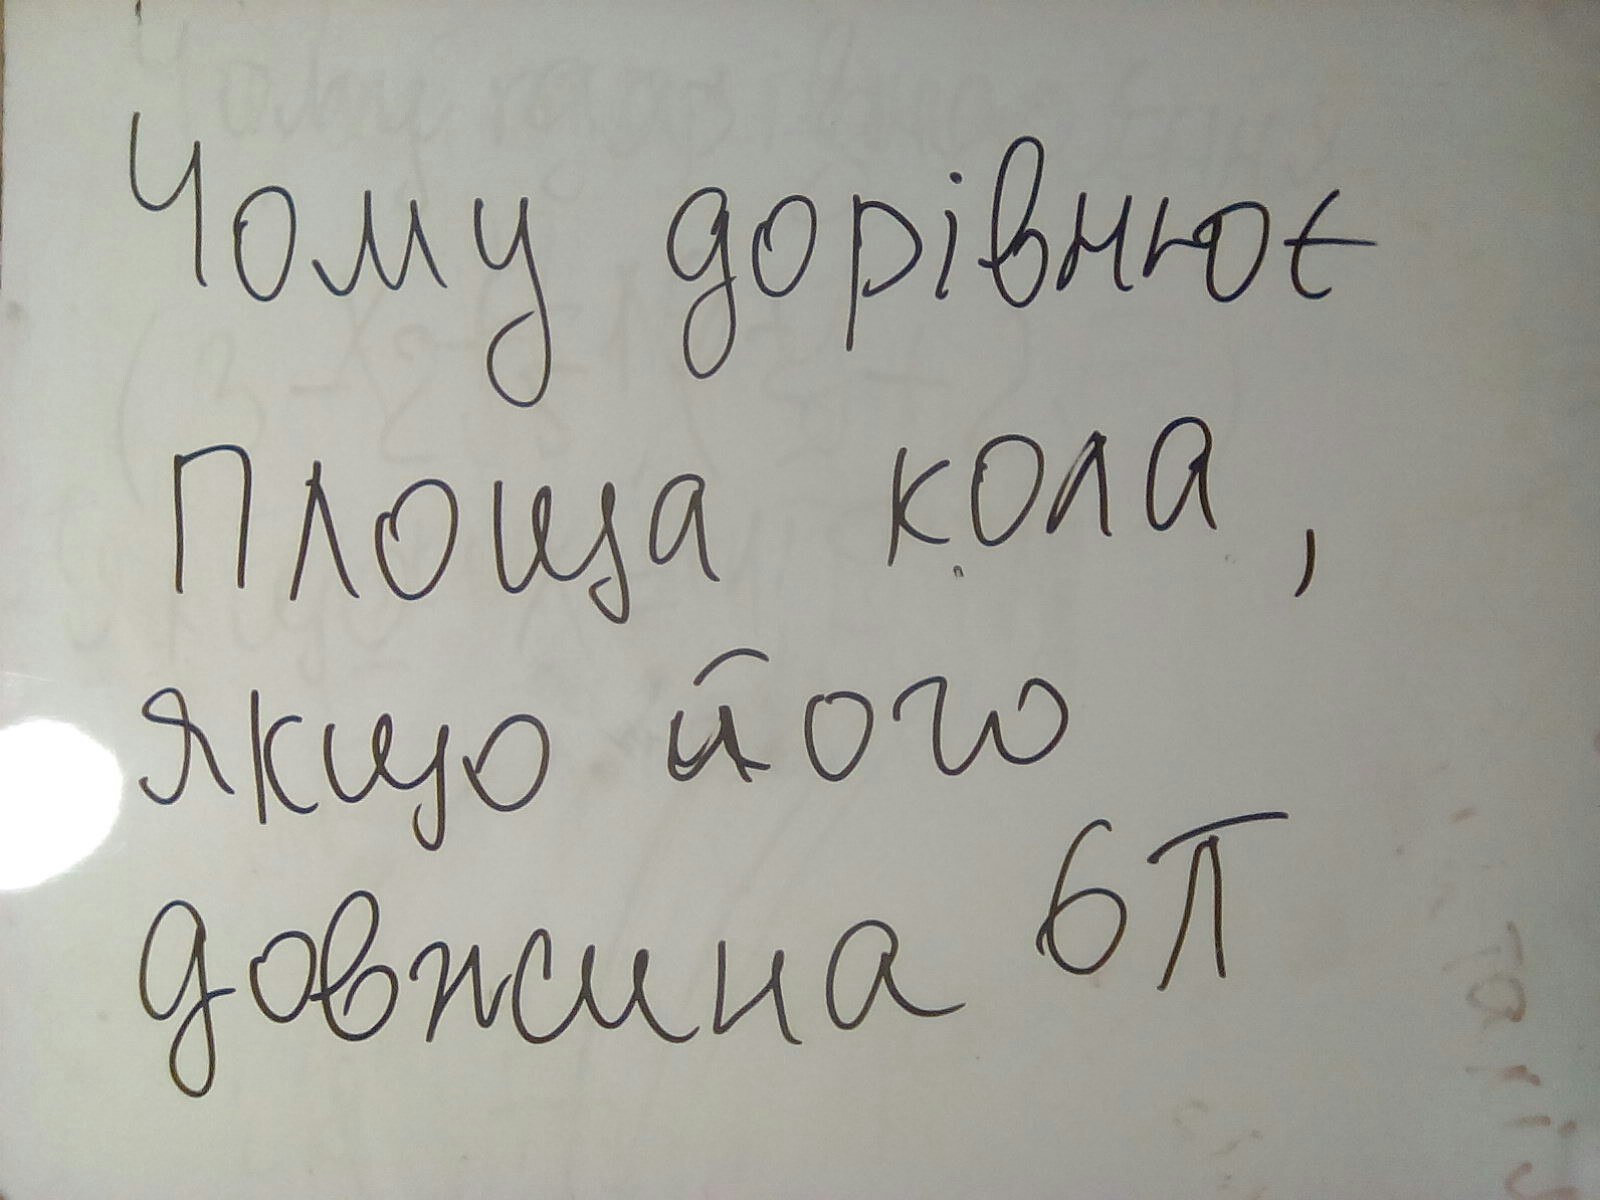 Чому дорівнює
площа кола,
якщо його
довжина 6π